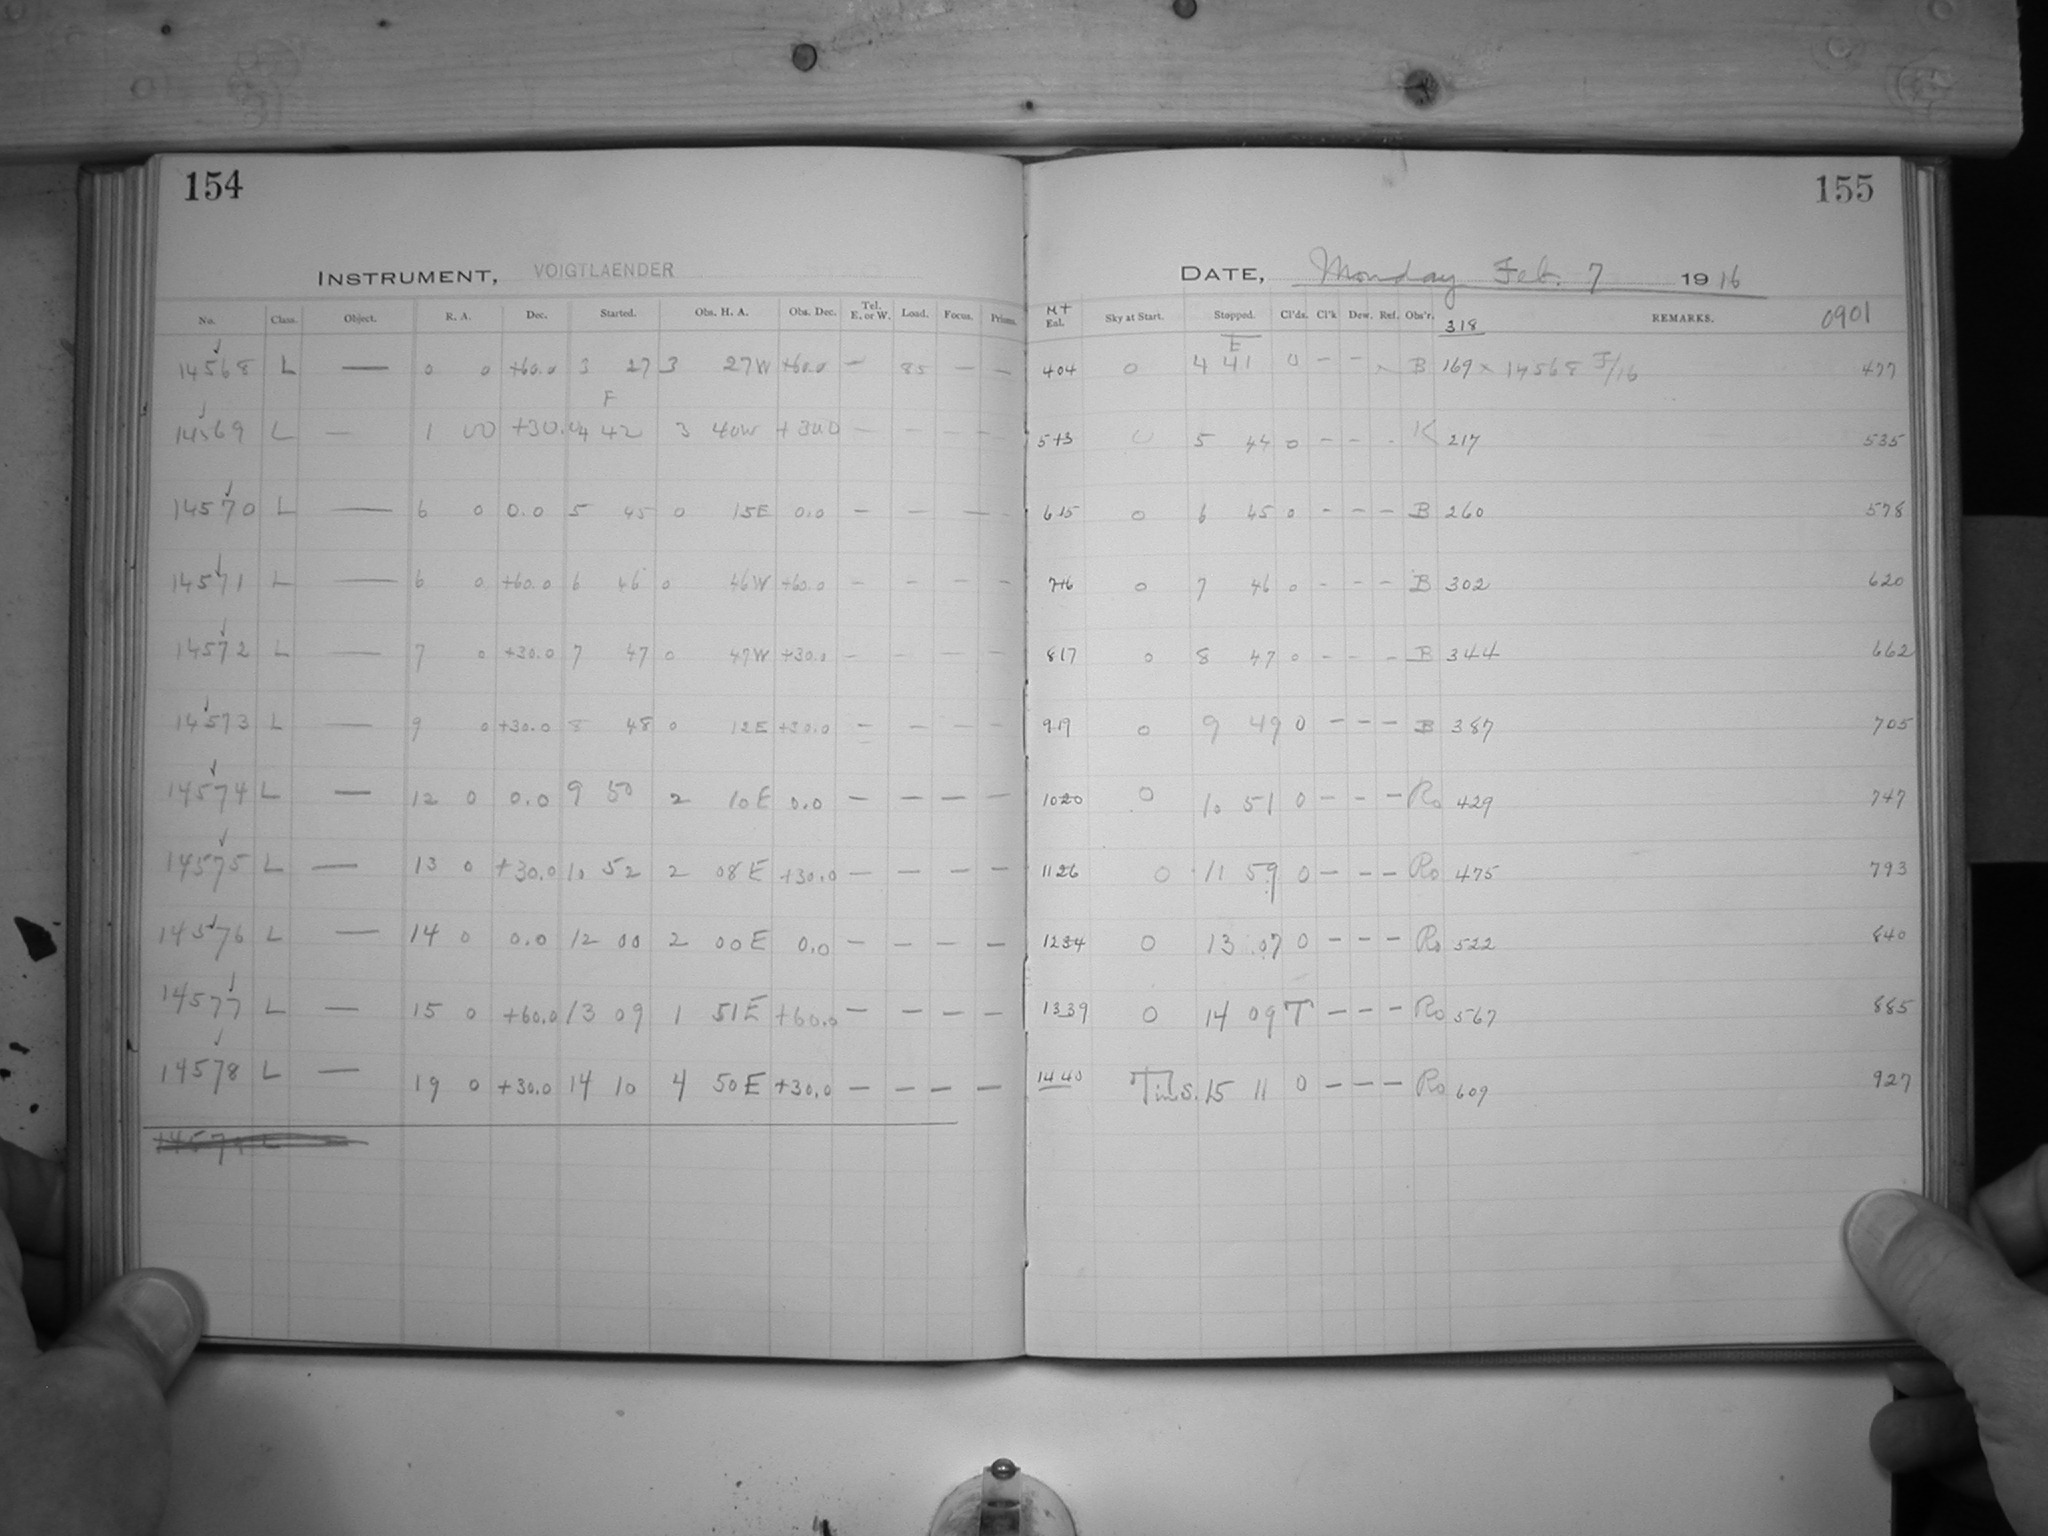 154
155
INSTRUMENT, VOIGTLAENDER
DATE, Monday Feb. 7 1916
No. Class. Object. R. A. Dec. Started. Obs. H. A. Obs. Dec. Tel. E. or W. Load. Focus. Prisms.
Enl. Sky at Start. Stopped. Cl'ds. Cl'k Dew. Ref. Obs'r. 318 REMARKS. 0901
14568 L — 0 0 +60.0 3 27 3 27W +60.0 — 85 — —
404 0 4 41 0 — — B 169 × 14568 F/16 477
14569 L — 1 00 +30.0 4 42 3 40W +30.0 — — — —
543 0 5 44 0 — — - K 217 535
14570 L — 6 0 0.0 5 45 0 15E 0.0 — — — -
645 0 6 45 0 - - - B 260 578
14571 L — 6 0 +60.0 6 46 0 46W +60.0 — — — —
746 0 7 46 0 - - - B 302 620
14572 L — 7 0 +30.0 7 47 0 47W +30.0 — — — —
817 0 8 47 0 - - - B 344 662
14573 L — 9 0 +30.0 8 48 0 12E +30.0 — — — —
919 0 9 49 0 - - - B 387 705
14574 L — 12 0 0.0 9 50 2 10E 0.0 — — — —
1020 0 10 51 0 - - - Ro 429 747
14575 L — 13 0 +30.0 10 52 2 08E +30.0 — — — —
1126 0 11 59 0 - - - Ro 475 793
14576 L — 14 0 0.0 12 00 2 00E 0.0 — — — —
1234 0 13 07 0 - - - Ro 522 840
14577 L — 15 0 +60.0 13 09 1 51E +60.0 — — — —
1339 0 14 09 T - - - Ro 567 885
14578 L — 19 0 +30.0 14 10 4 50E +30.0 — — — —
1440 15 11 0 - - - Ro 609 927